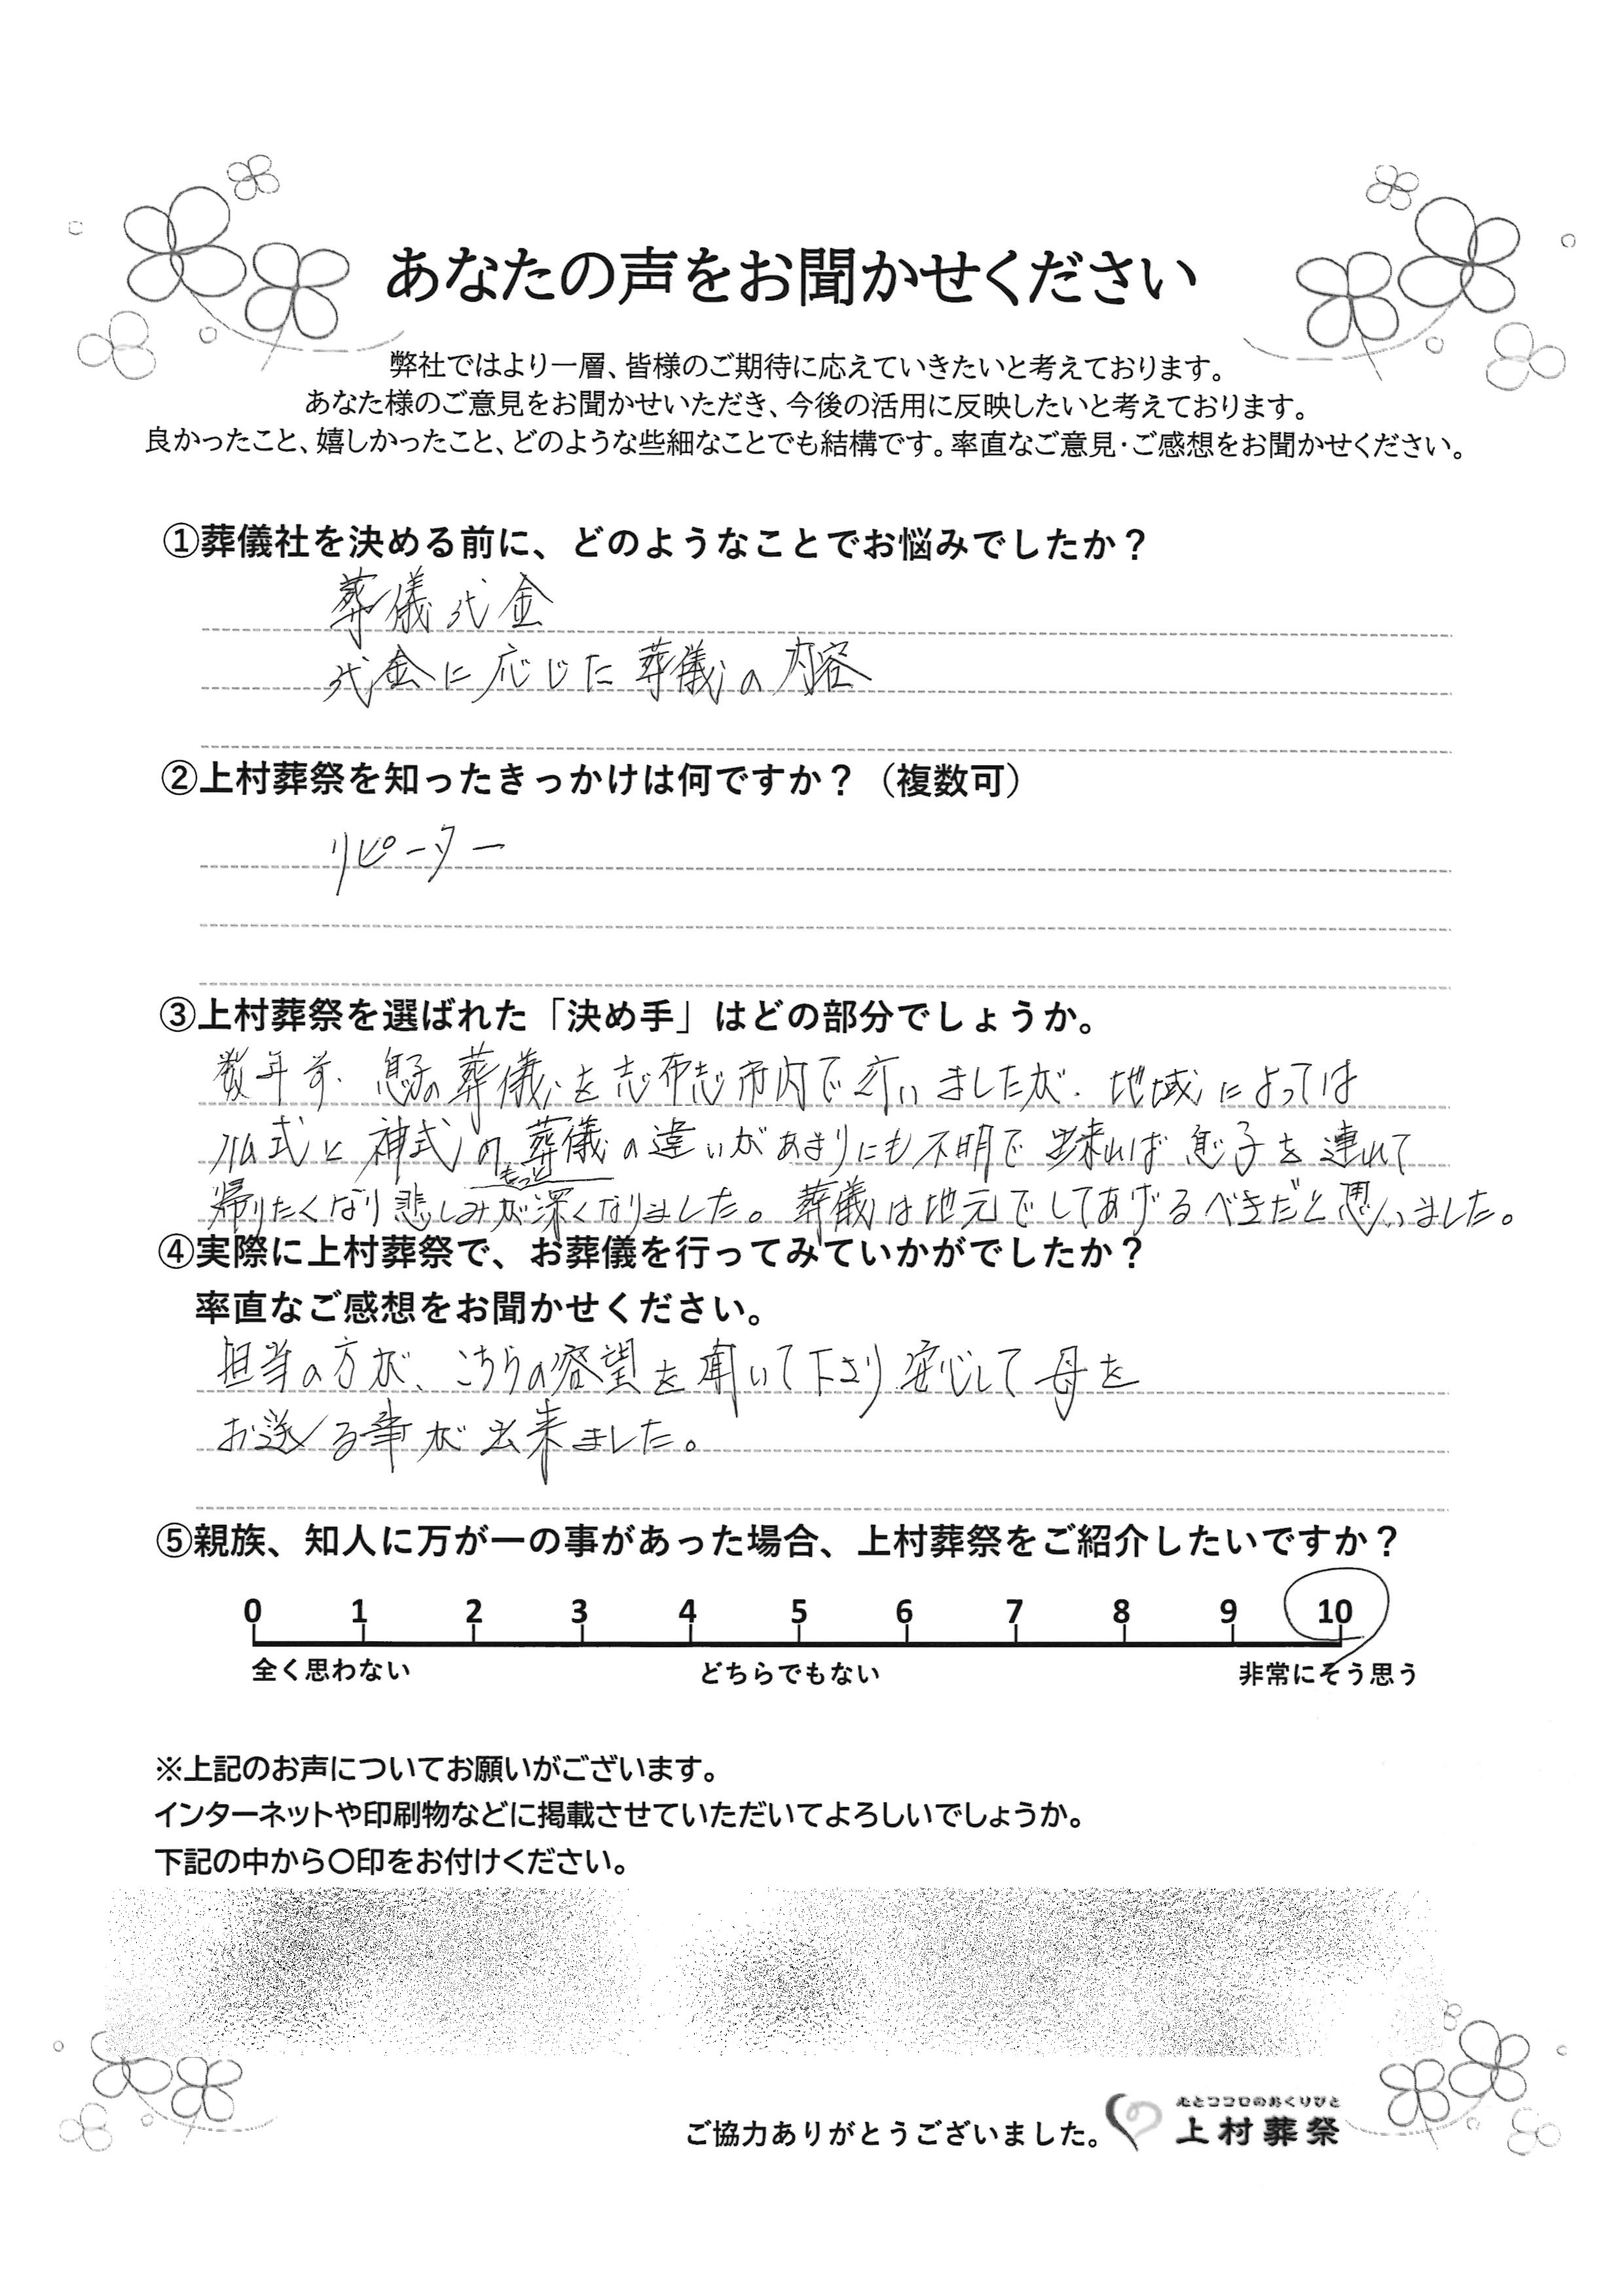 あなたの声をお聞かせください
弊社ではより一層、皆様のご期待に応えていきたいと考えております。
あなた様のご意見をお聞かせいただき、今後の活用に反映したいと考えております。
良かったこと、嬉しかったこと、どのような些細なことでも結構です。率直なご意見・ご感想をお聞かせください。
①葬儀社を決める前に、どのようなことでお悩みでしたか？
葬儀代金
代金に応じた葬儀の内容
②上村葬祭を知ったきっかけは何ですか？（複数可）
リピーター
③上村葬祭を選ばれた「決め手」はどの部分でしょうか。
数年前、息子の葬儀を志布志市内で行いましたが、地域によっては
仏式と神式の葬儀の違いがあまりにも不明で出来れば息子を連れて
もっと
帰りたくなり悲しみが深くなりました。葬儀は地元でしてあげるべきだと思いました。
④実際に上村葬祭で、お葬儀を行ってみていかがでしたか？
率直なご感想をお聞かせください。
担当の方が、こちらの要望を聞いて下さり安心して母を
お送る事が出来ました。
⑤親族、知人に万が一の事があった場合、上村葬祭をご紹介したいですか？
0 1 2 3 4 5 6 7 8 9 10
全く思わない どちらでもない 非常にそう思う
※上記のお声についてお願いがございます。
インターネットや印刷物などに掲載させていただいてよろしいでしょうか。
下記の中から〇印をお付けください。
心とココロのおくりびと
ご協力ありがとうございました。上村葬祭